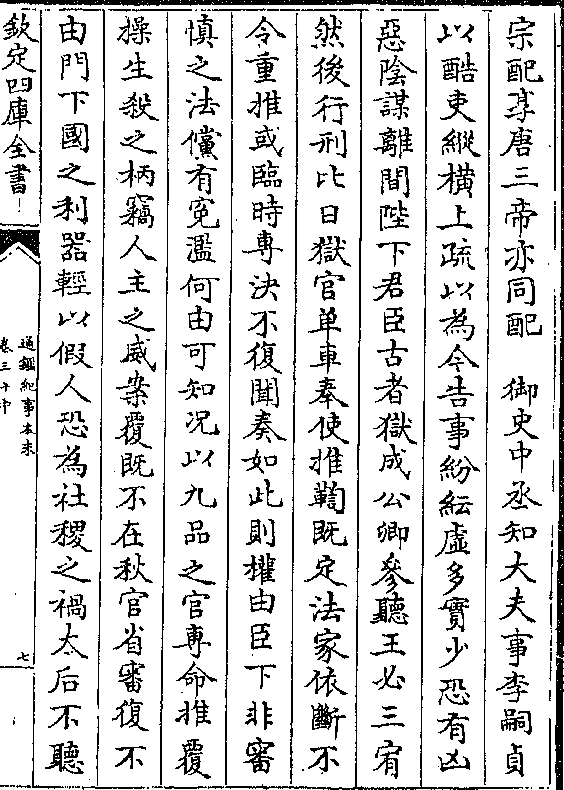 宗配享唐三帝亦同配　御史中丞知大夫事李嗣貞
以酷吏縱橫上疏以為今告事紛紜虛多實少恐有凶
惡陰謀離間陛下君臣古者獄成公卿參聽王必三宥
然後行刑比日獄官单車奉使推鞫既定法家依斷不
令重推或臨時專決不復聞奏如此則權由臣下非審
慎之法儻有寃濫何由可知况以九品之官專命推覆
操生殺之柄竊人主之威案覆既不在秋官省審復不
由門下國之利器輕以假人恐為社稷之禍太后不聽
欽定四庫全書
通鑑紀事本末
卷三十中
七